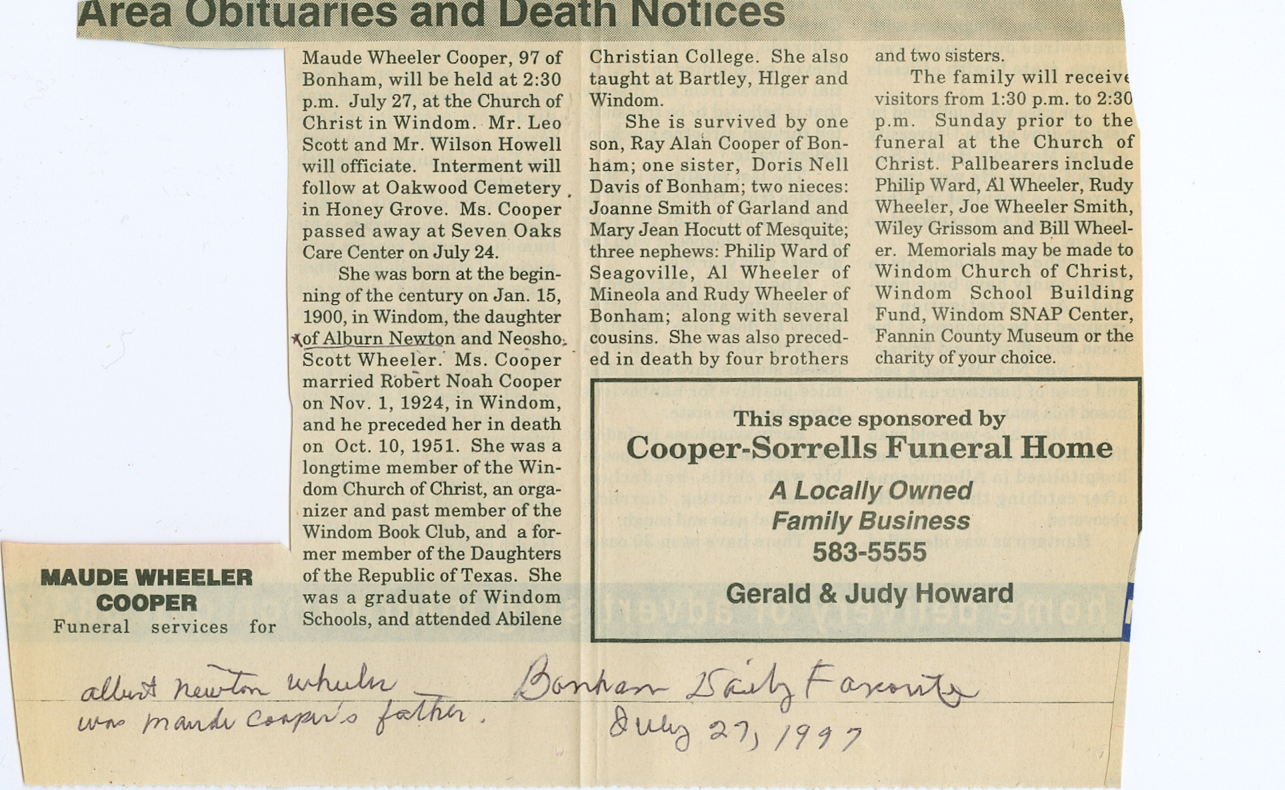 Area Obituaries and Death Notices
MAUDE WHEELER
COOPER
Funeral services for
Maude Wheeler Cooper, 97 of
Bonham, will be held at 2:30
p.m. July 27, at the Church of
Christ in Windom. Mr. Leo
Scott and Mr. Wilson Howell
will officiate. Interment will
follow at Oakwood Cemetery
in Honey Grove. Ms. Cooper
passed away at Seven Oaks
Care Center on July 24.
She was born at the begin-
ning of the century on Jan. 15,
1900, in Windom, the daughter
of Alburn Newton and Neosho
Scott Wheeler. Ms. Cooper
married Robert Noah Cooper
on Nov. 1, 1924, in Windom,
and he preceded her in death
on Oct. 10, 1951. She was a
longtime member of the Win-
dom Church of Christ, an orga-
nizer and past member of the
Windom Book Club, and a for-
mer member of the Daughters
of the Republic of Texas. She
was a graduate of Windom
Schools, and attended Abilene
Christian College. She also
taught at Bartley, HIger and
Windom.
She is survived by one
son, Ray Alan Cooper of Bon-
ham; one sister, Doris Nell
Davis of Bonham; two nieces:
Joanne Smith of Garland and
Mary Jean Hocutt of Mesquite;
three nephews: Philip Ward of
Seagoville, Al Wheeler of
Mineola and Rudy Wheeler of
Bonham; along with several
cousins. She was also preced-
ed in death by four brothers
and two sisters.
The family will receive
visitors from 1:30 p.m. to 2:30
p.m. Sunday prior to the
funeral at the Church of
Christ. Pallbearers include
Philip Ward, Al Wheeler, Rudy
Wheeler, Joe Wheeler Smith,
Wiley Grissom and Bill Wheel-
er. Memorials may be made to
Windom Church of Christ,
Windom School Building
Fund, Windom SNAP Center,
Fannin County Museum or the
charity of your choice.
This space sponsored by
Cooper-Sorrells Funeral Home
A Locally Owned
Family Business
583-5555
Gerald & Judy Howard
albert newton wheeler
was maude cooper's father.
Bonham Daily Favorite
July 27, 1997